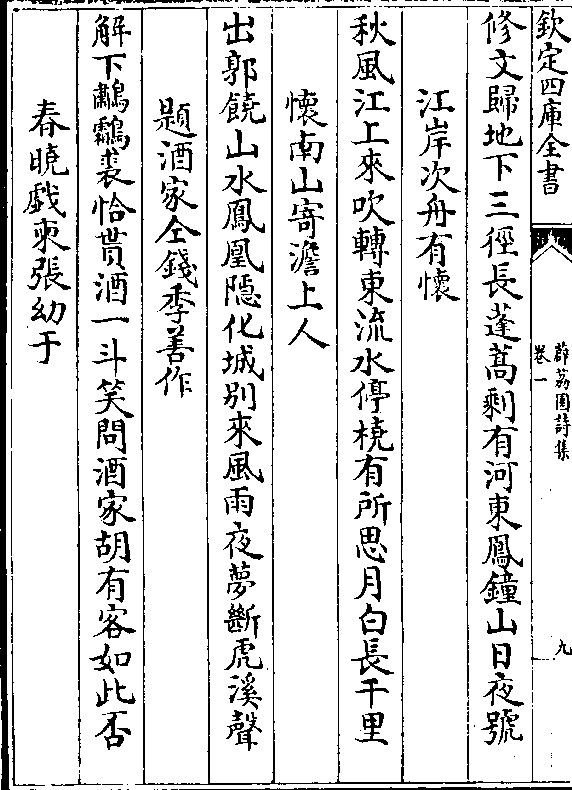 欽定四庫全書
薜荔園詩集
卷一
九
修文歸地下三徑長蓬蒿剩有河東鳳鐘山日夜號
江岸次舟有懷
秋風江上來吹轉東流水停橈有所思月白長千里
懷南山寄澹上人
出郭饒山水鳳凰隱化城別來風雨夜夢斷虎溪聲
題酒家仝錢季善作
解下鷫鸘裘恰貰酒一斗笑問酒家胡有客如此否
春曉戲柬張幼于